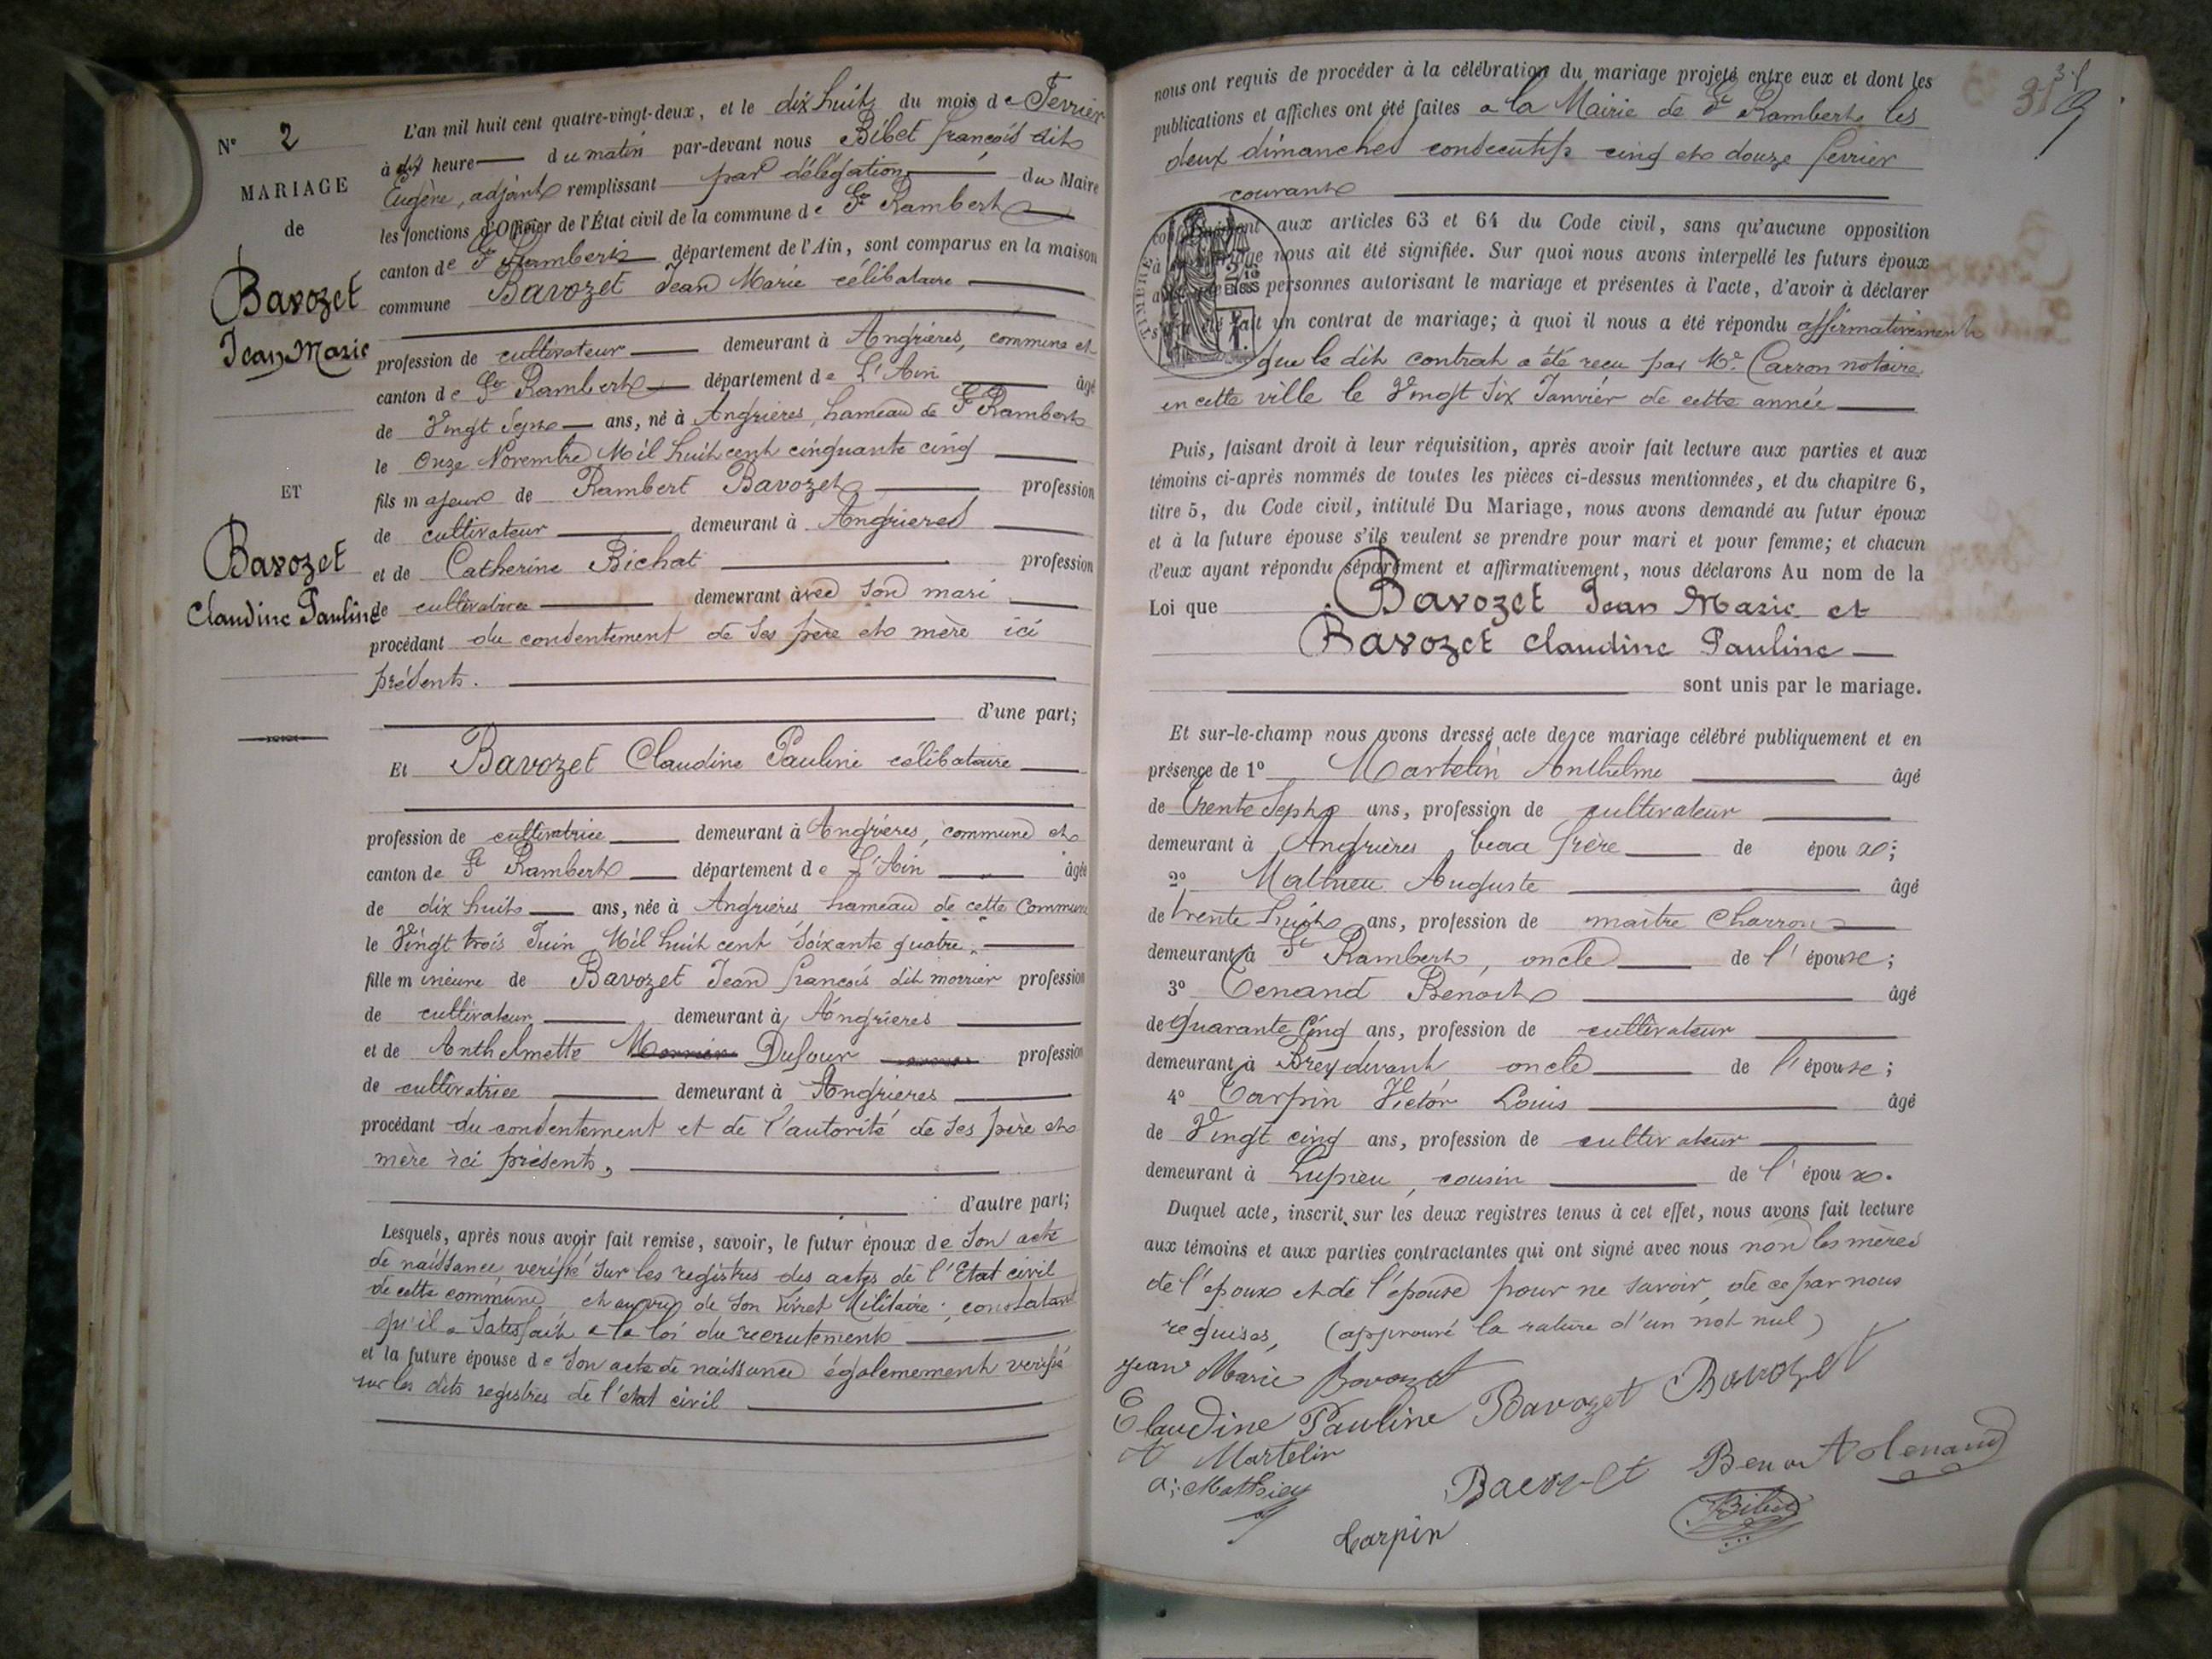 N° 2
MARIAGE
de
Bavozet
Jean Marie
ET
Bavozet
Claudine Pauline
L'an mil huit cent quatre-vingt-deux, et le dix huit du mois de Fevrier
à dix heure du matin par-devant nous Bibet françois dit
Eugène, adjoint remplissant par délégation du Maire
les fonctions d'Officier de l'État civil de la commune de St Rambert
canton de St Rambert département de l'Ain, sont comparus en la maison
commune Bavozet Jean Marie célibataire
profession de cultivateur demeurant à Angrières, commune et
canton de St Rambert département de L'Ain âgé
de Vingt Sept ans, né à Angrières, hameau de St Rambert
le Onze Novembre Mil huit cent cinquante cinq
fils majeur de Rambert Bavozet profession
de cultivateur demeurant à Angrieres
et de Catherine Bichat profession
de cultivatrice demeurant avec son mari
procédant du consentement de ses père et mère ici
présents.
d'une part;
Et Bavozet Claudine Pauline célibataire
profession de cultivatrice demeurant à Angrières, commune et
canton de St Rambert département de L'Ain âgée
de dix huit ans, née à Angrières hameau de cette Commune
le Vingt trois Juin Mil huit cent soixante quatre
fille mineure de Bavozet Jean françois dit morrier profession
de cultivateur demeurant à Angrieres
et de Anthelmette Morrier Dufour profession
de cultivatrice demeurant à Angrieres
procédant du consentement et de l'autorité de ses père et
mère ici présents,
d'autre part;
Lesquels, après nous avoir fait remise, savoir, le futur époux de son acte
de naissance, verifié sur les registres des actes de l'Etat civil
de cette commune, et au vu de son Livret Militaire, constatant
qu'il a satisfait a la loi du recrutement
et la future épouse de son acte de naissance égalemement verifié
sur les dits registres de l'etat civil
nous ont requis de procéder à la célébration du mariage projeté entre eux et dont les
publications et affiches ont été faites a la Mairie de St Rambert les
deux dimanches consecutifs cinq et douze fevrier
courant
aux articles 63 et 64 du Code civil, sans qu'aucune opposition
à nous ait été signifiée. Sur quoi nous avons interpellé les futurs époux
personnes autorisant le mariage et présentes à l'acte, d'avoir à déclarer
fait un contrat de mariage; à quoi il nous a été répondu affirmativement
que le dit contrat a été recu par Me Carron notaire
en cette ville le Vingt Six Janvier de cette année
Puis, faisant droit à leur réquisition, après avoir fait lecture aux parties et aux
témoins ci-après nommés de toutes les pièces ci-dessus mentionnées, et du chapitre 6,
titre 5, du Code civil, intitulé Du Mariage, nous avons demandé au futur époux
et à la future épouse s'ils veulent se prendre pour mari et pour femme; et chacun
d'eux ayant répondu séparément et affirmativement, nous déclarons Au nom de la
Loi que Bavozet Jean Marie et
Bavozet Claudine Pauline
sont unis par le mariage.
Et sur-le-champ nous avons dressé acte de ce mariage célébré publiquement et en
présence de 1° Martelin Anthelme âgé
de trente Sept ans, profession de cultivateur
demeurant à Angrières beau frère de époux;
2° Mathieu Auguste âgé
de trente huit ans, profession de maitre Charron
demeurant à St Rambert, oncle de l'épouse;
3° Tenand Benoit âgé
de quarante Cinq ans, profession de cultivateur
demeurant à Breydevant oncle de l'épouse;
4° Tarpin Victor Louis âgé
de Vingt cinq ans, profession de cultivateur
demeurant à Lupieu, cousin de l'époux.
Duquel acte, inscrit sur les deux registres tenus à cet effet, nous avons fait lecture
aux témoins et aux parties contractantes qui ont signé avec nous non les mères
de l'époux et de l'épouse pour ne savoir, de ce par nous
requises, (approuvé la rature d'un mot nul)
Jean Marie Bavozet
Claudine Pauline Bavozet Bavozet
A Martelin
a: Mathieu
Bavozet Benoit tenand
tarpin
Bibet